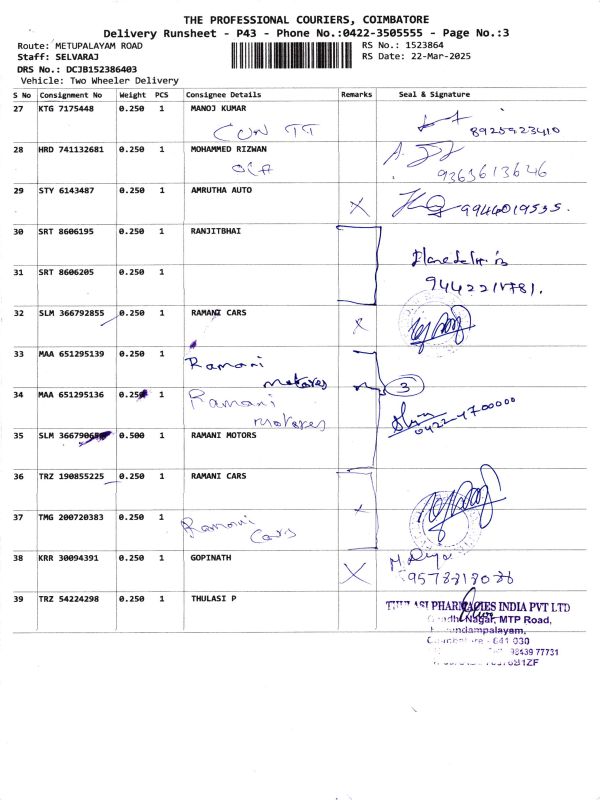 THE PROFESSIONAL COURIERS, COIMBATORE
Delivery Runsheet - P43 - Phone No.:0422-3505555 - Page No.:3
Route: METUPALAYAM ROAD RS No.: 1523864
Staff: SELVARAJ RS Date: 22-Mar-2025
DRS No.: DCJB152386403
Vehicle: Two Wheeler Delivery
S No Consignment No Weight PCS Consignee Details Remarks Seal & Signature
27 KTG 7175448 0.250 1 MANOJ KUMAR
CON TT 8925923410
28 HRD 741132681 0.250 1 MOHAMMED RIZWAN
OLA 9363613646
29 STY 6143487 0.250 1 AMRUTHA AUTO
X 9944019555.
30 SRT 8606195 0.250 1 RANJITBHAI
31 SRT 8606205 0.250 1
32 SLM 366792855 0.250 1 RAMANI CARS
X
33 MAA 651295139 0.250 1
Ramani
motores
34 MAA 651295136 0.250 1 3
Ramani
motores
0422-4700000
35 SLM 0.500 1 RAMANI MOTORS
36 TRZ 190855225 0.250 1 RAMANI CARS
37 TMG 200720383 0.250 1
Ramani
Cars
38 KRR 30094391 0.250 1 GOPINATH
X
39 TRZ 54224298 0.250 1 THULASI P
THULASI PHARMACIES INDIA PVT LTD
Nagar, MTP Road,
641 030
98439 77731